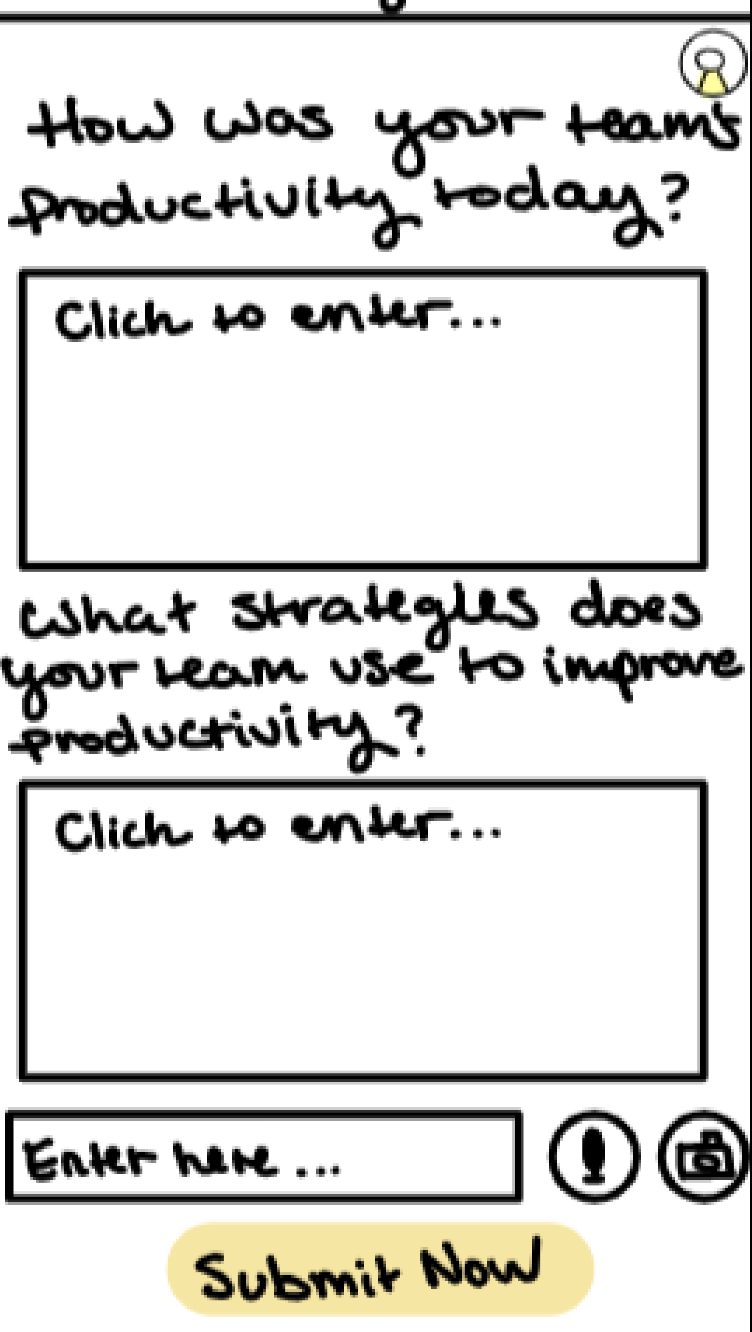 How was your team's
productivity today?
Click to enter...
What strategies does
your team use to improve
productivity?
Click to enter...
Enter here ...
Submit Now